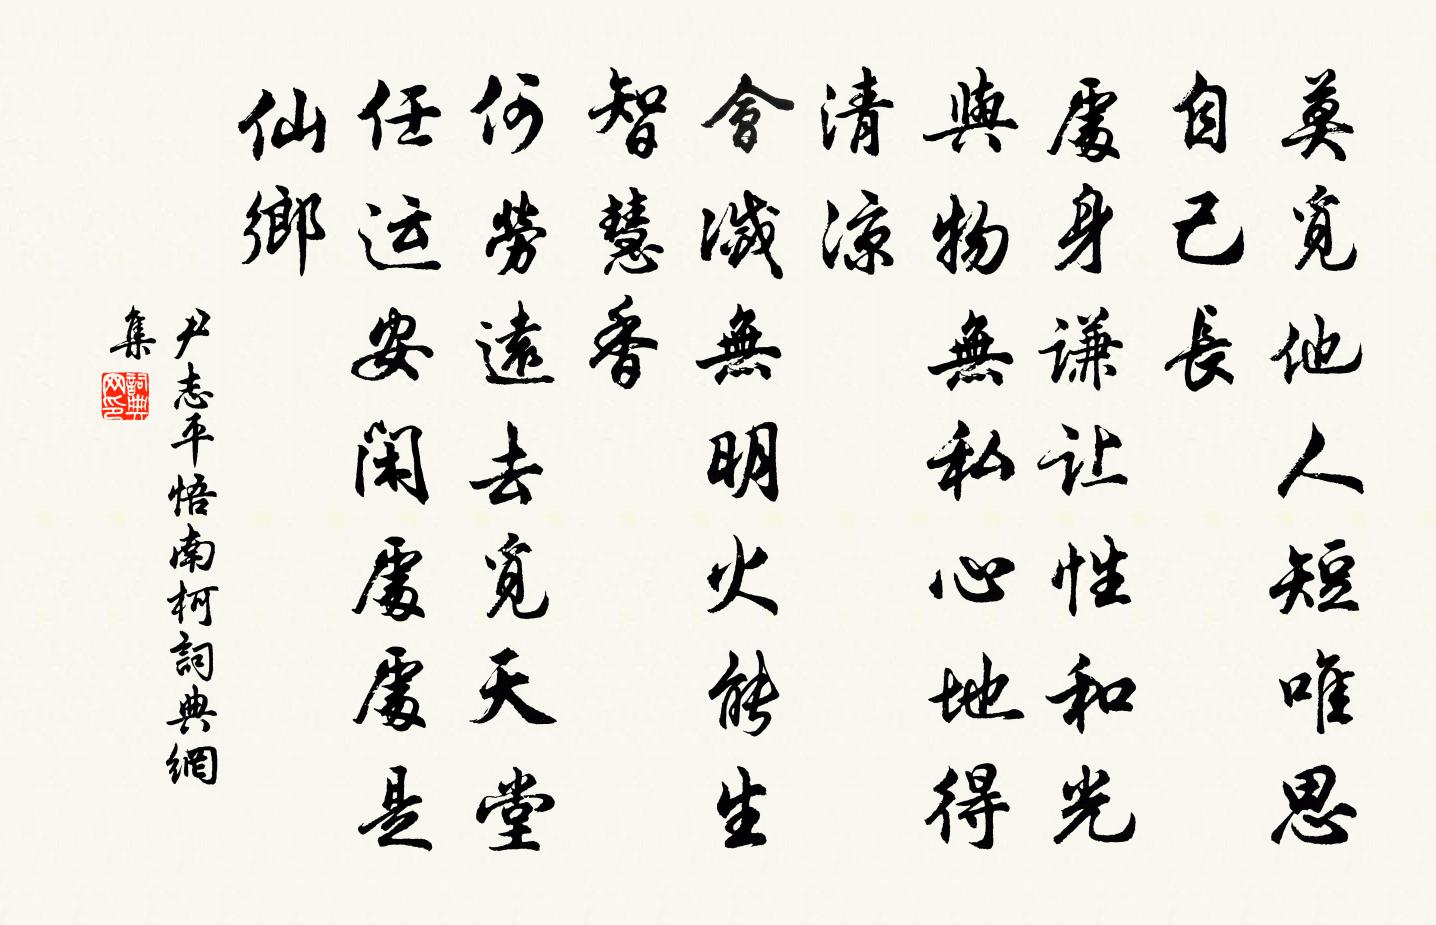 莫覓他人短唯思
自己長
處身謙让性和光
與物無私心地得
清涼
會滅無明火能生
智慧香
何勞遠去覓天堂
任运安閑處處是
仙鄉
尹志平悟南柯詞典網
集
詞典网印